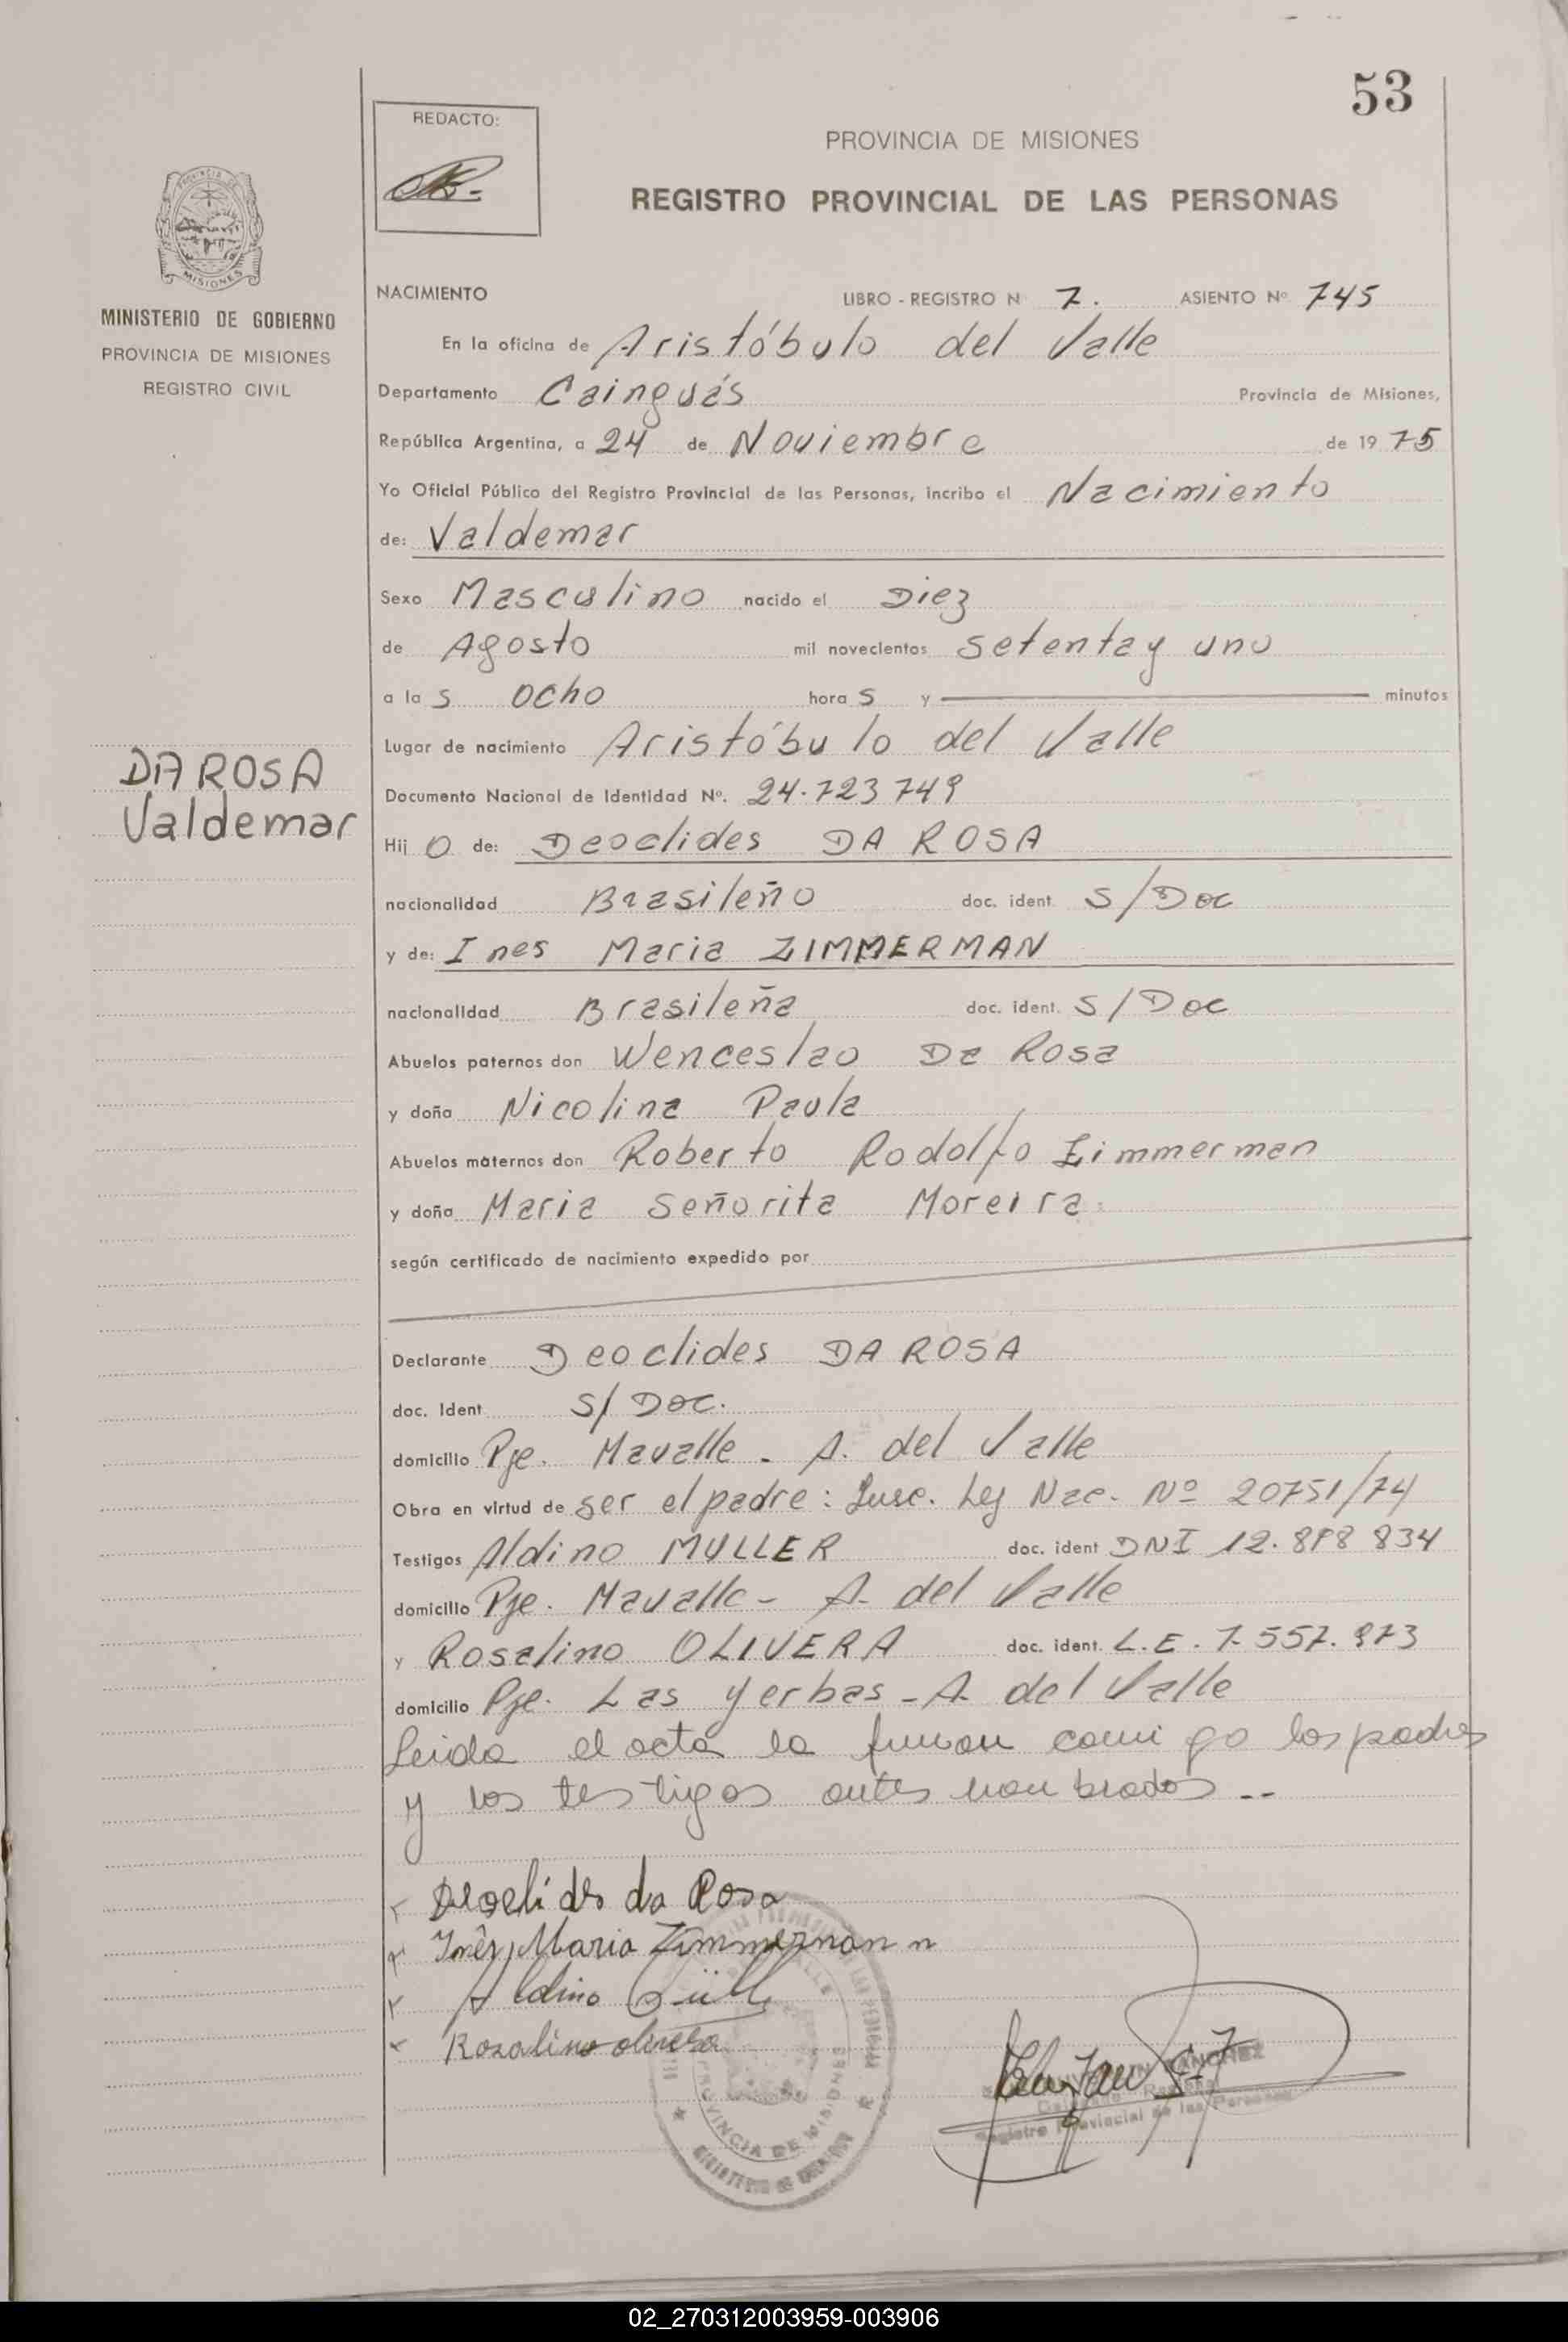 53
REDACTO:
PROVINCIA DE MISIONES
REGISTRO PROVINCIAL DE LAS PERSONAS
MISIONES
MINISTERIO DE GOBIERNO
PROVINCIA DE MISIONES
REGISTRO CIVIL
NACIMIENTO LIBRO - REGISTRO Nº 7. ASIENTO Nº 745
En la oficina de Aristóbulo del Valle
Departamento Cainguás Provincia de Misiones,
República Argentina, a 24 de Noviembre de 1975
Yo Oficial Público del Registro Provincial de las Personas, incribo el Nacimiento
de: Valdemar
Sexo Masculino nacido el Diez
de Agosto mil novecientos setenta y uno
a las ocho horas y minutos
Lugar de nacimiento Aristóbulo del Valle
DA ROSA
Valdemar
Documento Nacional de Identidad Nº. 24.723749
Hijo de: Deoclides DA ROSA
nacionalidad Brasileño doc. ident. S/Doc
y de: Ines Maria ZIMMERMAN
nacionalidad Brasileña doc. ident. S/Doc
Abuelos paternos don Wenceslao Da Rosa
y doña Nicolina Paula
Abuelos maternos don Roberto Rodolfo Zimmerman
y doña Maria Señorita Moreira
según certificado de nacimiento expedido por
Declarante Deoclides DA ROSA
doc. Ident. S/Doc.
domicilio Pje. Mavalle - A. del Valle
Obra en virtud de ser el padre: Insc. Ley Nac. Nº 20751/74
Testigos Aldino MULLER doc. ident DNI 12.
domicilio Pje. Mavalle - A. del Valle
y Rosalino OLIVERA doc. ident. L.E. 7.557.
domicilio Pje. Las Yerbas - A. del Valle
Leida el acta la firman conmigo los padres
y los testigos antes nombrados --
Deoclides da Rosa
Inês Maria Zimmermann
Aldino Müller
Rosalino olivera
SANCHEZ
Registro Provincial de las Personas
PROVINCIA DE MISIONES
MINISTERIO DE GOBIERNO
02_270312003959-003906